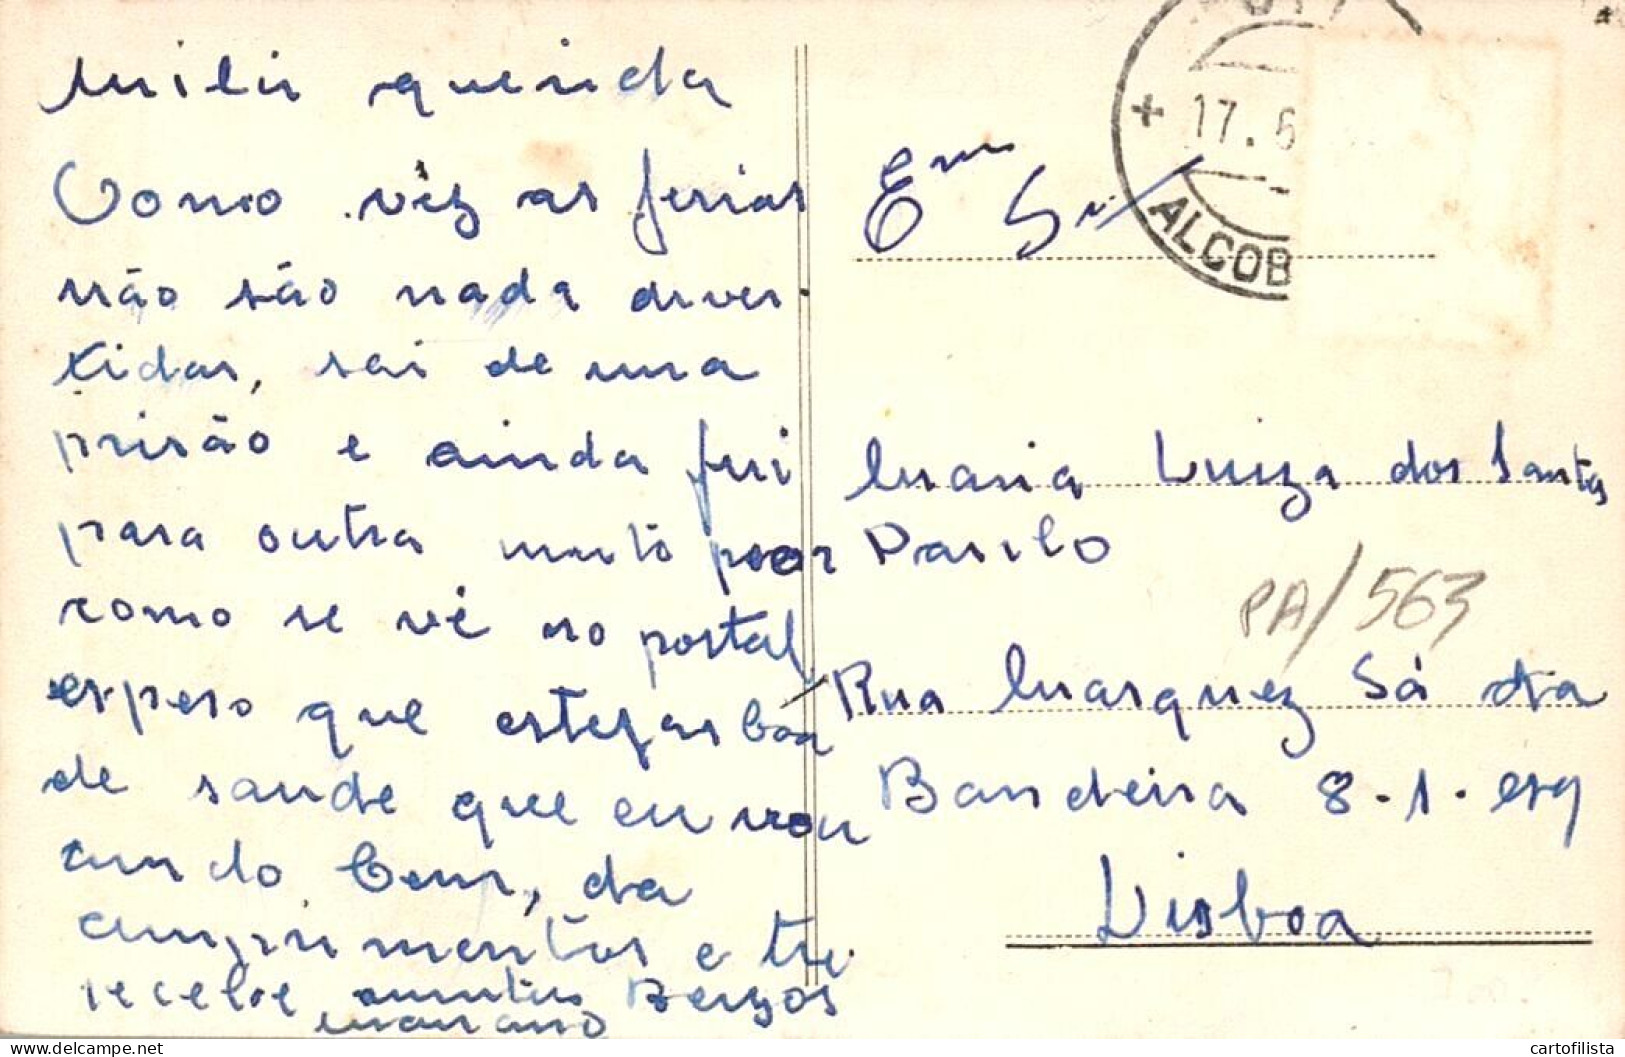 querida
Como vêz as ferias
não são nada diver
tidas, sai de uma
prisão e ainda fui
para outra muito peor
como se vê no postal
espero que estejas bôa
de saude que eu vou
ando bem, da
cumprimentos e tu
recebe muitos Beijos
mariano
Ema Sra
Maria Luiza dos Santos
Rua Marquez Sá da
Bandeira 8.1.esq
Lisboa
PA/563
+ 17.6
ALCOB
cartofilista
www.delcampe.net